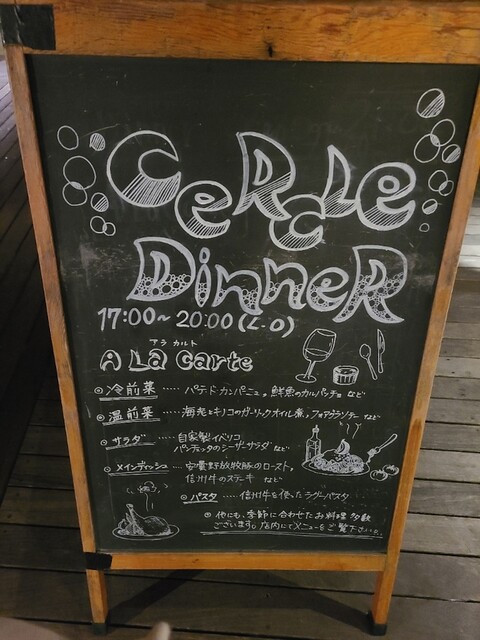 CeRcLe
DinneR
17:00~20:00(L.O)
アラ カルト
A La Carte
◎冷前菜 ····· パテ・ド・カンパーニュ。鮮魚のカルパッチョ など
◎温前菜 ····· 海老とキノコのガーリックオイル煮。フォアグラソテー など
◎サラダ ····· 自家製イベリコ
パンチェッタのシーザーサラダ など
◎メインディッシュ ···· 安曇野放牧豚のロースト。
信州牛のステーキ など
◎パスタ ····· 信州牛を使ったラグーパスタ
◎他にも、季節に合わせたお料理多数
ございます。店内にてメニューをご覧下さいませ。